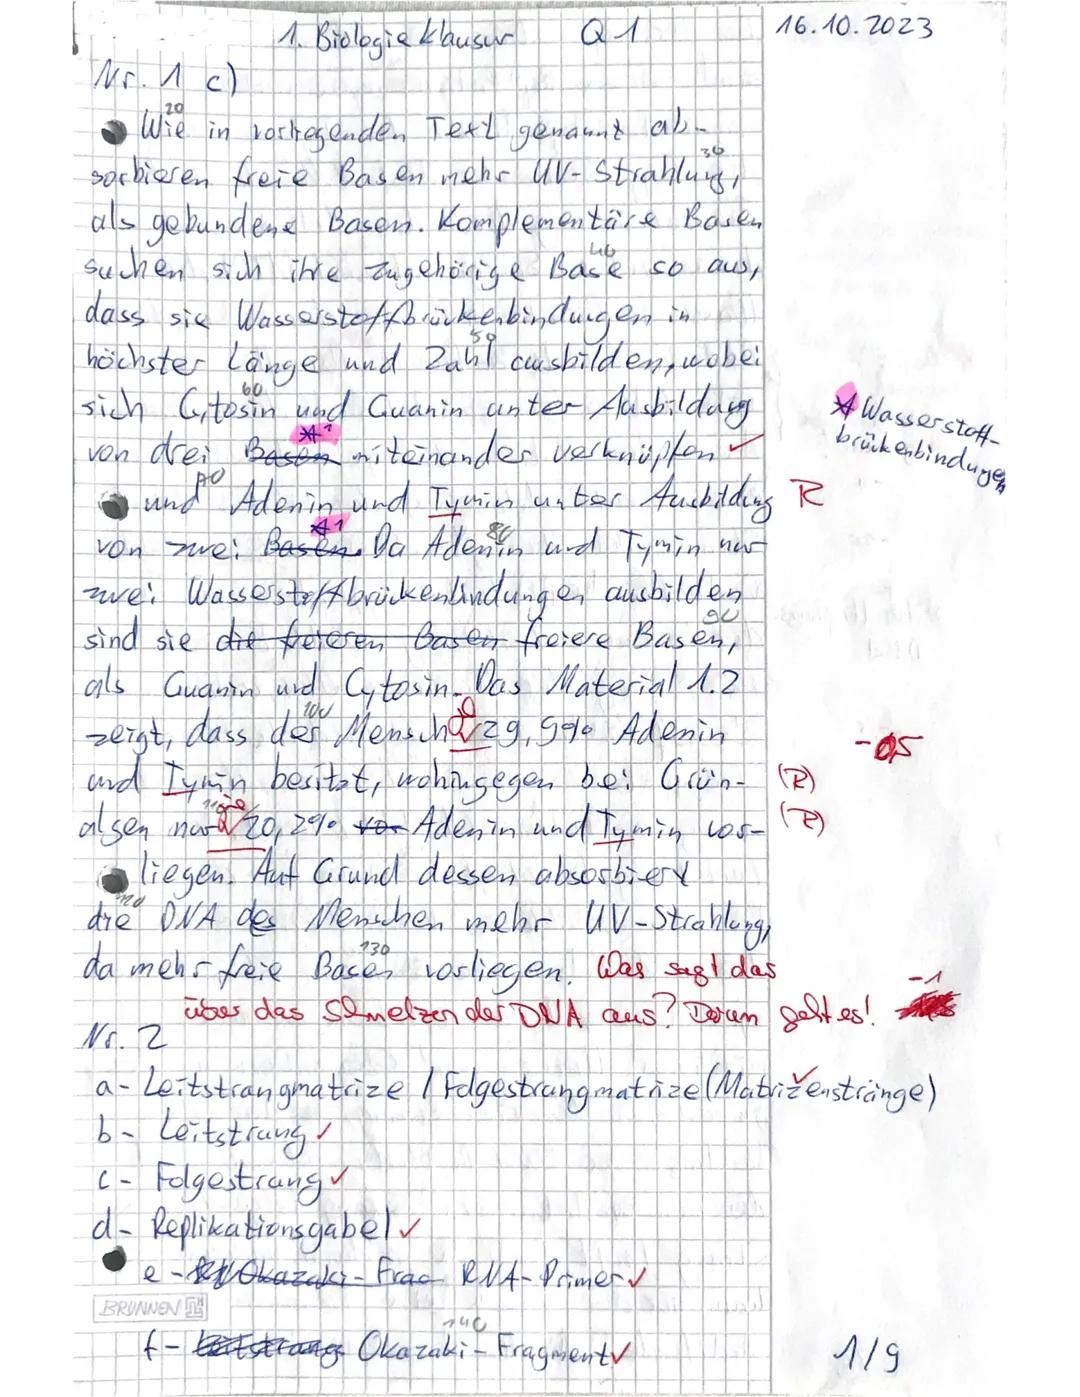 1. Biologie Klausur Q1 16.10.2023
Nr. 1 c)
20
Wie in vorliegenden Text genannt ab-
30
sorbieren freie Basen mehr UV-Strahlung,
als gebundene Basen. Komplementäre Basen
40
suchen sich ihre zugehörige Base so aus,
dass sie Wasserstoffbrückenbindungen in
50
höchster Länge und Zahl ausbilden, wobei
60
sich Cytosin und Guanin unter Ausbildung
*1
von drei Basen miteinander verknüpfen ✓
* Wasserstoff-
brückenbindungen
70
und Adenin und Tymin unter Ausbildung R
*1 80
von zwei Basen. Da Adenin und Tymin nur
zwei Wasserstoffbrückenbindungen ausbilden
90
sind sie die freieren Basen freiere Basen,
als Guanin und Cytosin. Das Material 1.2
100
zeigt, dass der Mensch 29,9% Adenin -0,5
und Tymin besitzt, wohingegen bei Grün- (R)
110
algen nur 20,2% vor Adenin und Tymin vor- (R)
liegen. Auf Grund dessen absorbiert
120
die DNA des Menschen mehr UV-Strahlung,
130
da mehr freie Basen vorliegen. Was sagt das -1
über das Schmelzen der DNA aus? Darum geht es!
Nr. 2
a- Leitstrangmatrize / Folgestrangmatrize (Matrizenstränge) ✓
b- Leitstrang ✓
c- Folgestrang ✓
d- Replikationsgabel ✓
e- Okazaki-Frag RNA-Primer ✓
BRUNNEN
140
f- Leitstrang Okazaki-Fragment ✓
1/9